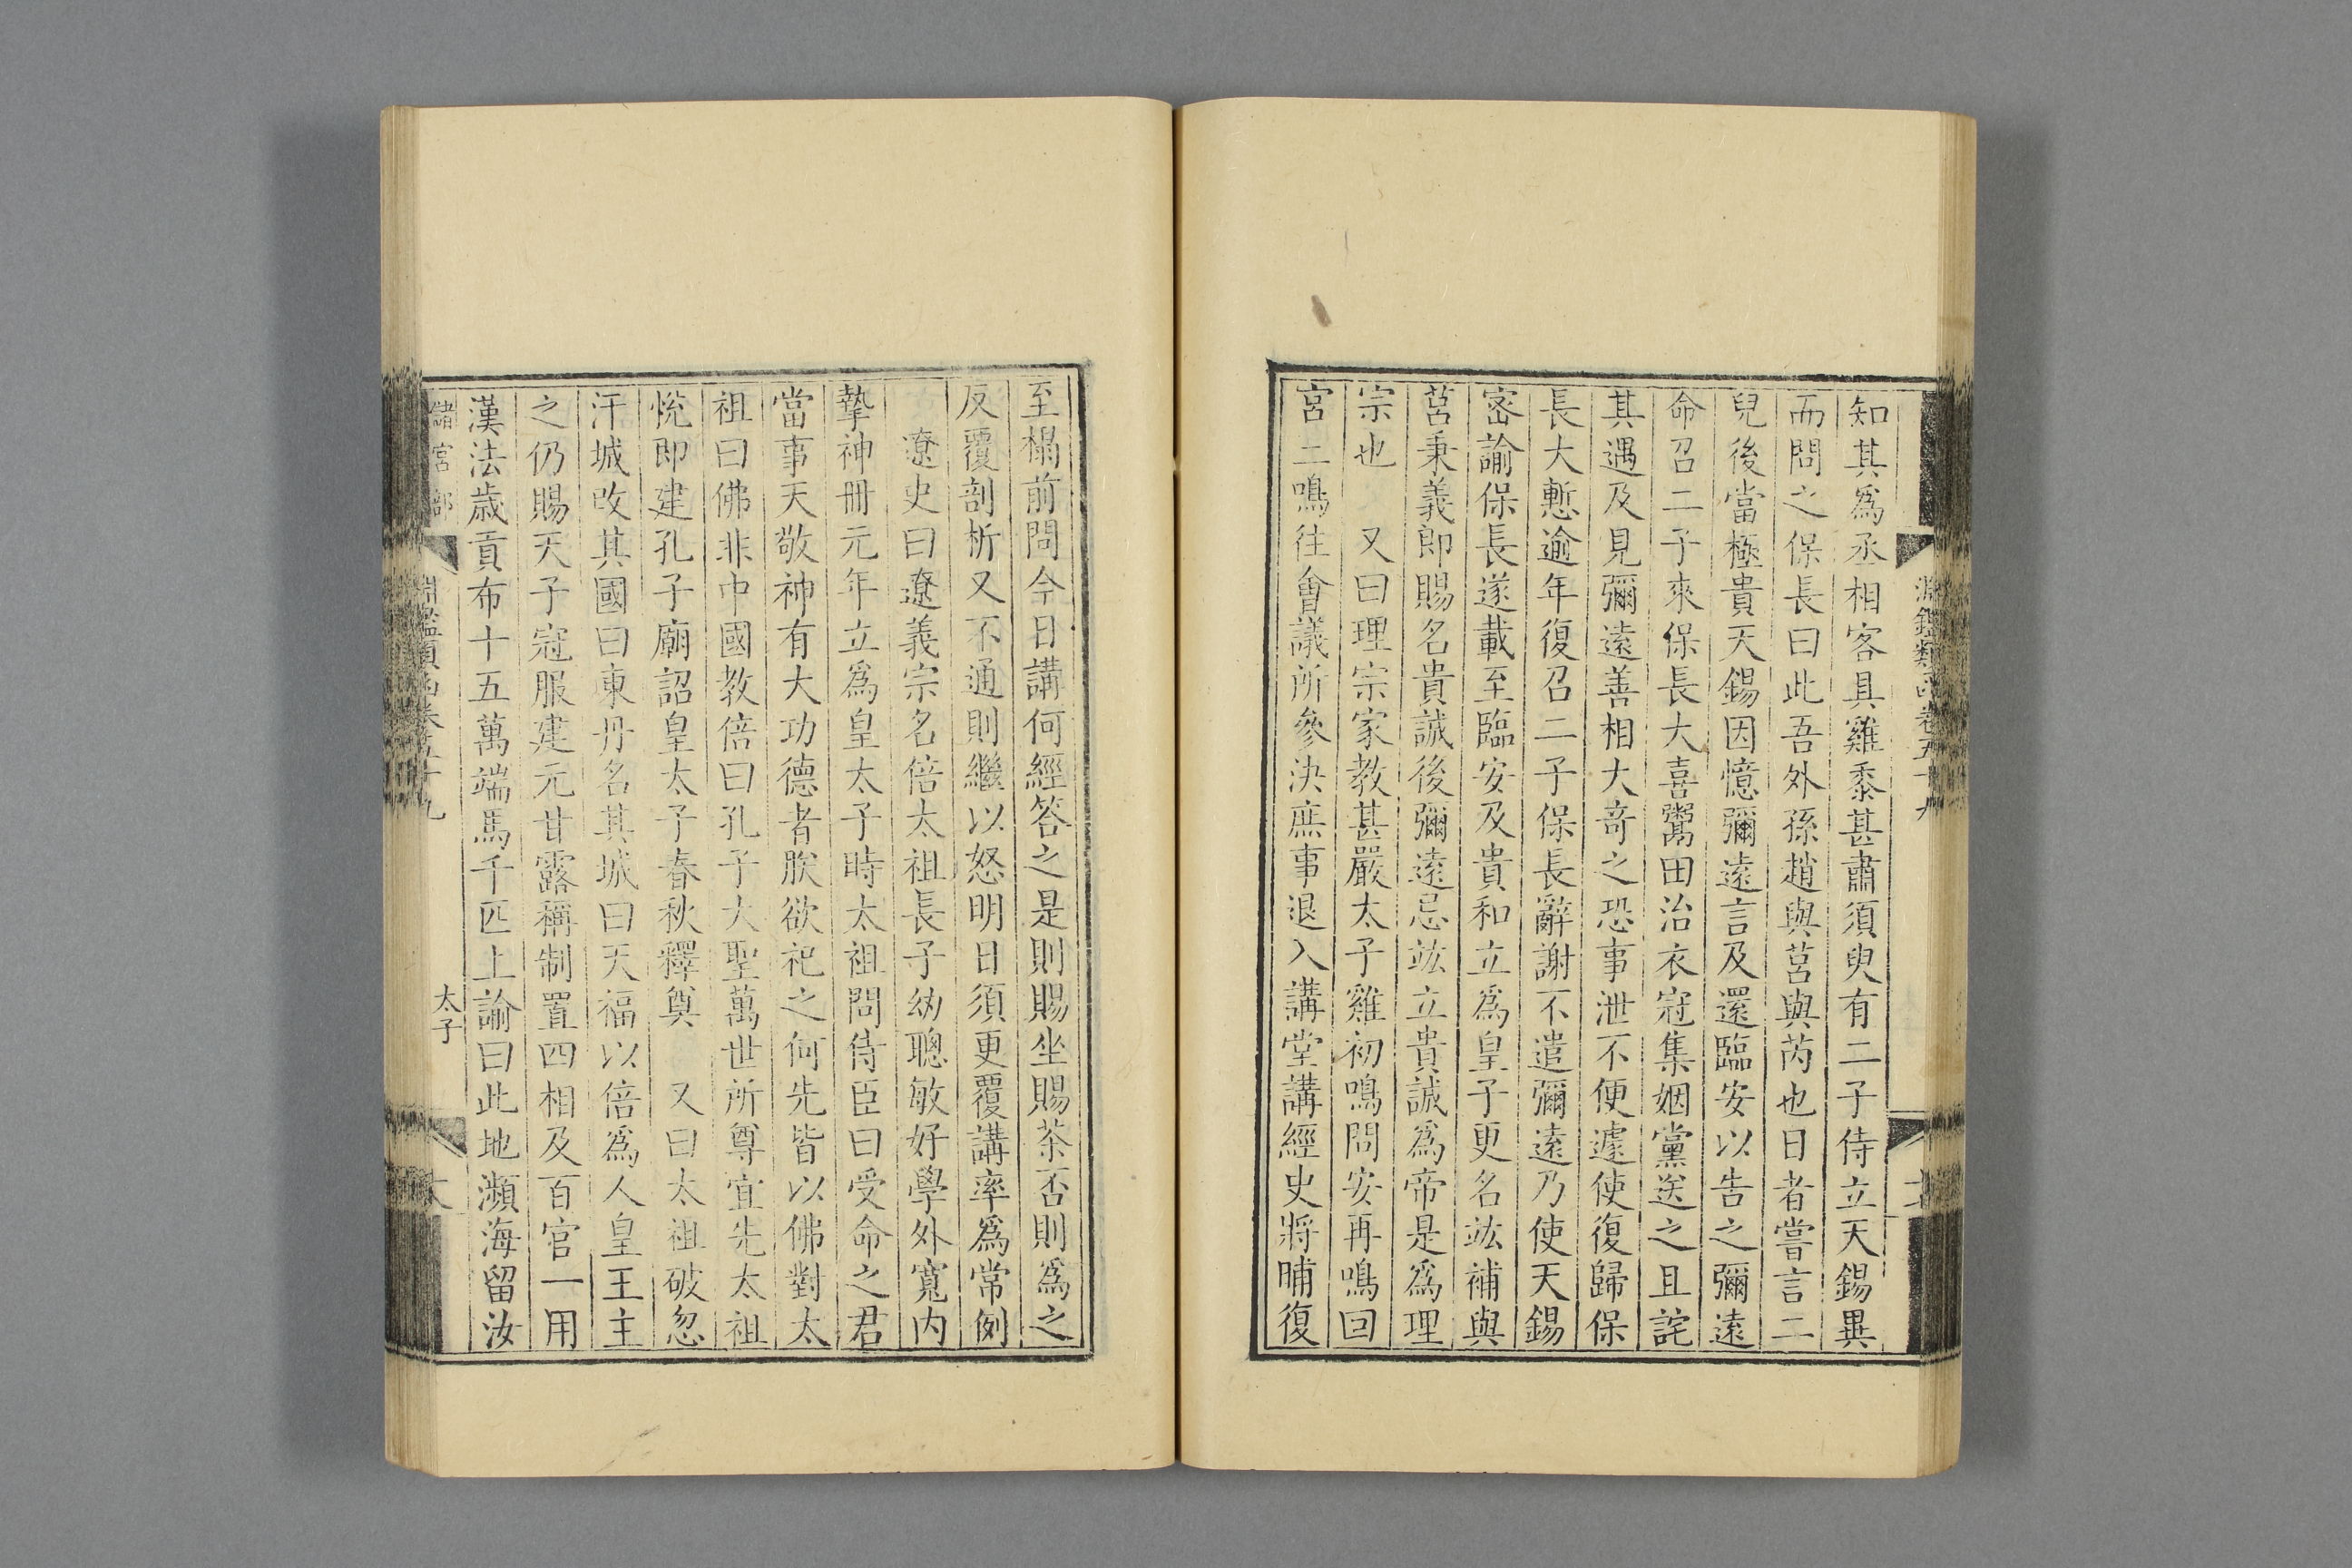 淵鑑類函卷五十九
知其爲丞相客具雞黍甚肅須臾有二子侍立天錫異
而問之保長曰此吾外孫趙與莒與芮也日者嘗言二
兒後當極貴天錫因憶彌遠言及還臨安以告之彌遠
命召二子來保長大喜鬻田治衣冠集姻黨送之且詫
其遇及見彌遠善相大奇之恐事泄不便遽使復歸保
長大慙逾年復召二子保長辭謝不遣彌遠乃使天錫
密諭保長遂載至臨安及貴和立爲皇子更名竑補與
莒秉義郎賜名貴誠後彌遠忌竑立貴誠爲帝是爲理
宗也　又曰理宗家教甚嚴太子雞初鳴問安再鳴回
宮三鳴往會議所參決庶事退入講堂講經史將晡復
至榻前問今日講何經答之是則賜坐賜茶否則爲之
反覆剖析又不通則繼以怒明日須更覆講率爲常例
遼史曰遼義宗名倍太祖長子幼聰敏好學外寬內
摯神冊元年立爲皇太子時太祖問侍臣曰受命之君
當事天敬神有大功德者朕欲祀之何先皆以佛對太
祖曰佛非中國教倍曰孔子大聖萬世所尊宜先太祖
悅即建孔子廟詔皇太子春秋釋奠　又曰太祖破忽
汗城改其國曰東丹名其城曰天福以倍爲人皇王主
之仍賜天子冠服建元甘露稱制置四相及百官一用
漢法歲貢布十五萬端馬千匹上諭曰此地瀕海留汝
儲宮部
淵鑑類函卷五十九
太子